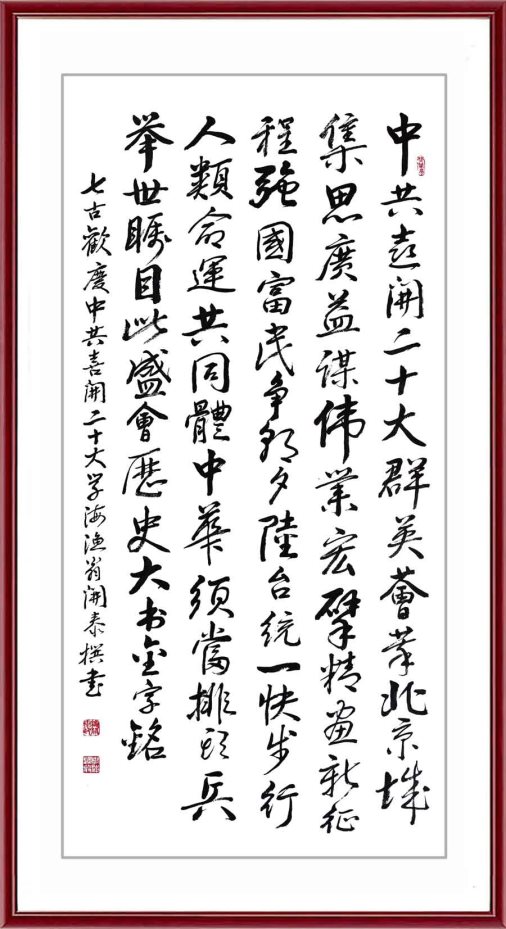 中共喜開二十大群英薈萃北京城
集思廣益謀伟業宏擘精畫新征
程强國富民争朝夕陸台统一快步行
人類命運共同體中華須當排頭兵
举世瞩目此盛會歷史大书金字銘
七古歡慶中共喜開二十大学海漁翁開泰撰书